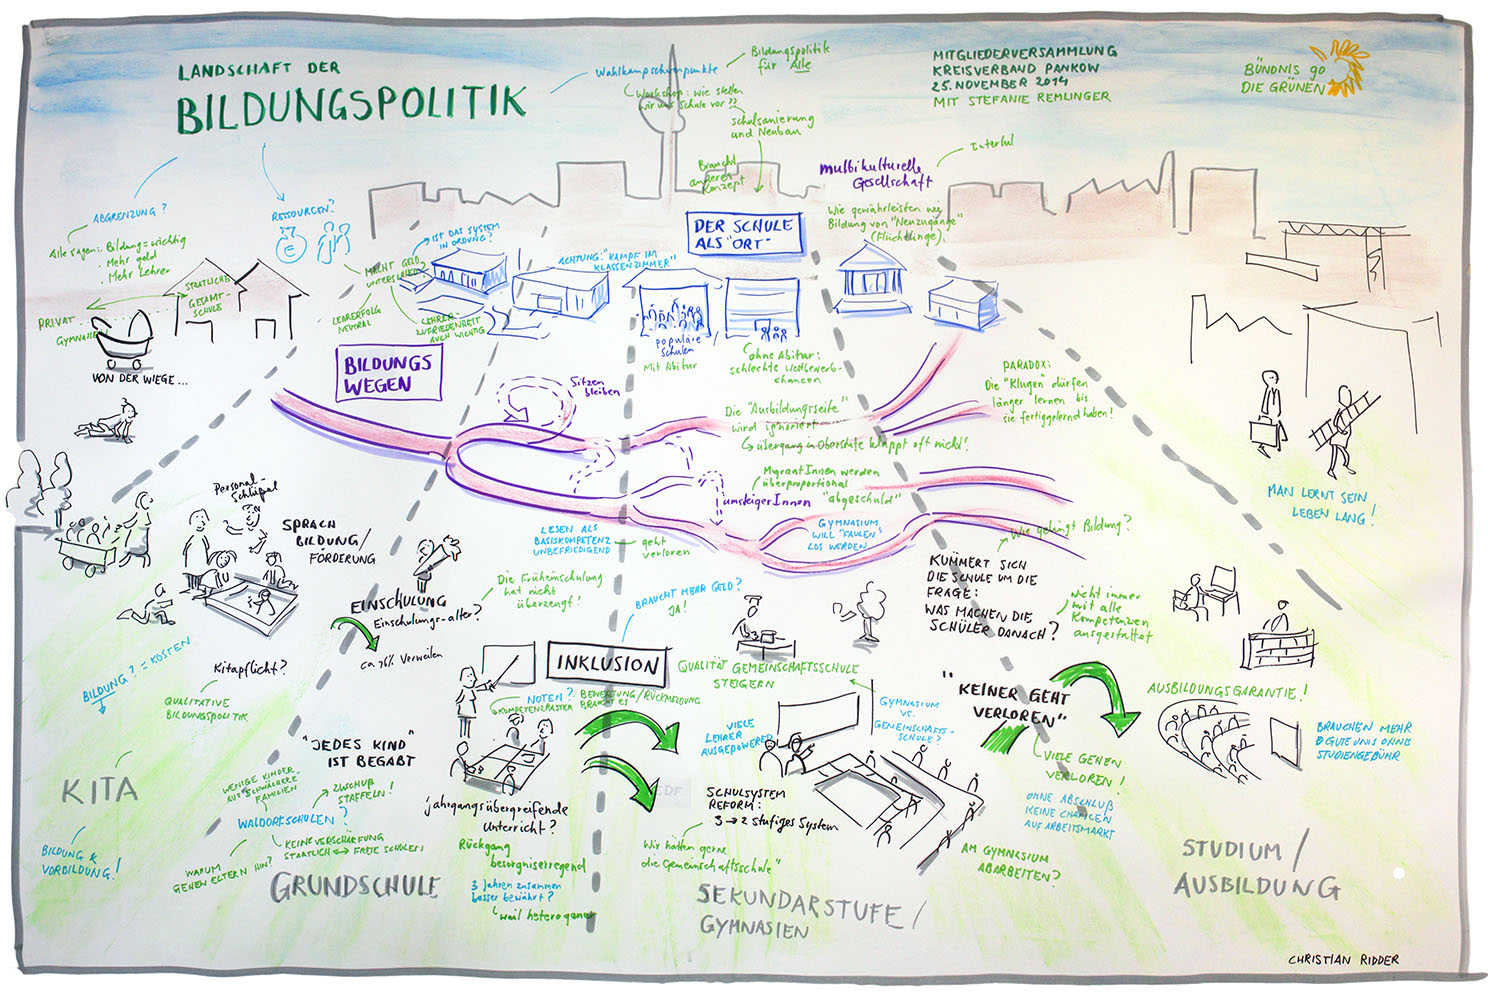 LANDSCHAFT DER
BILDUNGSPOLITIK
Wahlkampfschwerpunkte
Bildungspolitik
für Alle
Workshop: wie stellen
wir uns Schule vor??
Schulsanierung
und Neubau
Braucht
anderes
Konzept
MITGLIEDERVERSAMMLUNG
KREISVERBAND PANKOW
25. NOVEMBER 2014
MIT STEFANIE REMLINGER
BÜNDNIS 90
DIE GRÜNEN
multikulturelle
Gesellschaft
Wie gewährleisten wir
Bildung von "Neuzugänge"
(Flüchtlinge).
ABGRENZUNG?
Alle sagen: Bildung = wichtig
Mehr Geld
Mehr Lehrer
RESSOURCEN?
PRIVAT
GYMNASIEN
STAATLICHE
GESAMT-
SCHULE
MACHT GELD
UNTERSCHIED?
IST DAS SYSTEM
IN ORDNUNG?
LEHRERFOLG
NEUTRAL
LEHRER-
ZUFRIEDENHEIT
AUCH WICHTIG
ACHTUNG: "KAMPF IM
KLASSENZIMMER"
DER SCHULE
ALS "ORT"
populäre
Schulen
Mit Abitur
ohne Abitur:
schlechte Wettbewerb-
chancen
VON DER WIEGE...
BILDUNGS
WEGEN
Sitzen
bleiben
Die "Ausbildungsreife"
wird ignoriert
übergang in Oberstufe klappt oft nicht!
PARADOX:
Die "Klugen" dürfen
länger lernen bis
sie fertiggelernd haben!
MigrantInnen werden
überproportional
"abgeschuld"
umsteigerInnen
GYMNASIUM
WILL "FAULEN"
LOS WERDEN
Wie gelingt Bildung?
MAN LERNT SEIN
LEBEN LANG!
Personal-
Schlüssel
SPRACH
BILDUNG/
FÖRDERUNG
LESEN ALS
BASISKOMPETENZ
UNBEFRIEDIGEND
geht
verloren
EINSCHULUNG
Einschulungs-alter?
Die Früheinschulung
hat nicht
überzeugt!
BRAUCHT MEHR GELD?
JA!
KÜMMERT SICH
DIE SCHULE UM DIE
FRAGE:
WAS MACHEN DIE
SCHÜLER DANACH?
Nicht immer
mit alle
Kompetenzen
ausgestattet
Verweilen
INKLUSION
QUALITÄT GEMEINSCHAFTSSCHULE
STEIGERN
BILDUNG? = KOSTEN
Kitapflicht?
QUALITATIVE
BILDUNGSPOLITIK
NOTEN?
BEWERTUNG/RÜCKMELDUNG
BRAUCHT ES
KOMPETENZRASTER
VIELE
LEHRER
AUSGEPOWERED
GYMNASIUM
VS.
GEMEINSCHAFTS-
SCHULE?
"KEINER GEHT
VERLOREN"
AUSBILDUNGSGARANTIE!
BRAUCHEN MEHR
& GUTE UNIS OHNE
STUDIENGEBÜHR
VIELE GEHEN
VERLOREN!
OHNE ABSCHLUß
KEINE CHANCEN
AUF ARBEITSMARKT
"JEDES KIND"
IST BEGABT
KITA
WENIGE KINDER
AUS SCHWÄCHERE
FAMILIEN
ZUSCHUß
STAFFELN!
WALDORFSCHULEN?
KEINE VERSCHÄRFUNG
STAATLICH ↔ FREIE SCHULEN
WARUM
GEHEN ELTERN HIN?
BILDUNG &
VORBILDUNG!
GRUNDSCHULE
jahrgangsübergreifende
Unterricht?
Rückgang
besorgniserregend
3 Jahren zusammen
besser bewährt?
weil heterogener
SCHULSYSTEM
REFORM:
3 → 2 stufiges System
Wir hätten gerne
die Gemeinschaftsschule"
SEKUNDARSTUFE/
GYMNASIEN
AM GYMNASIUM
ABARBEITEN?
STUDIUM/
AUSBILDUNG
CHRISTIAN RIDDER